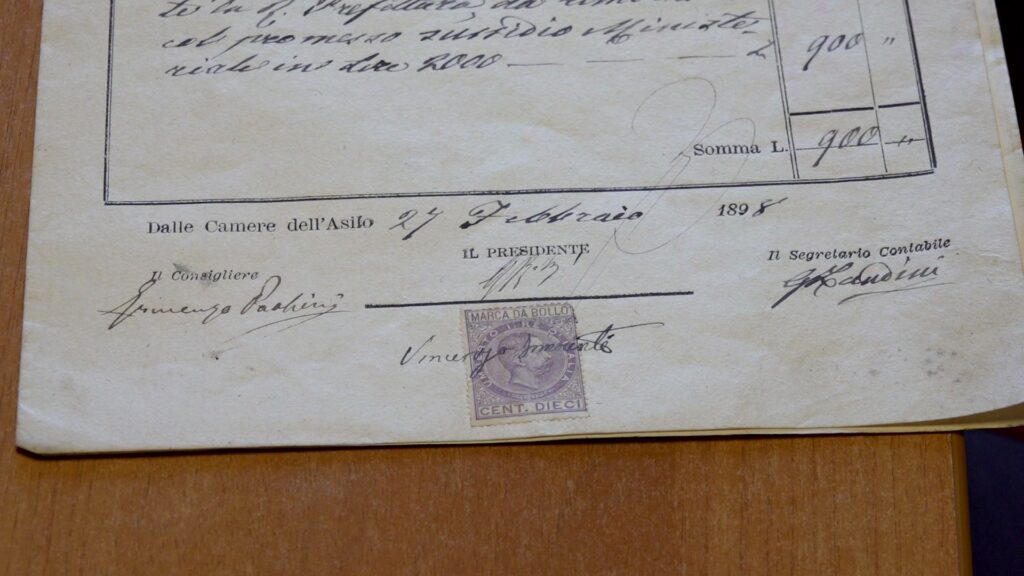 te la R. Prefettura da
col promesso sussidio Ministe-
riale in Lire 2000 — — — L 900 "
Somma L. 900 "
Dalle Camere dell'Asilo 27 Febbraio 1898
IL PRESIDENTE
Il Consigliere
Il Segretario Contabile
MARCA DA BOLLO
Vincenzo
CENT. DIECI